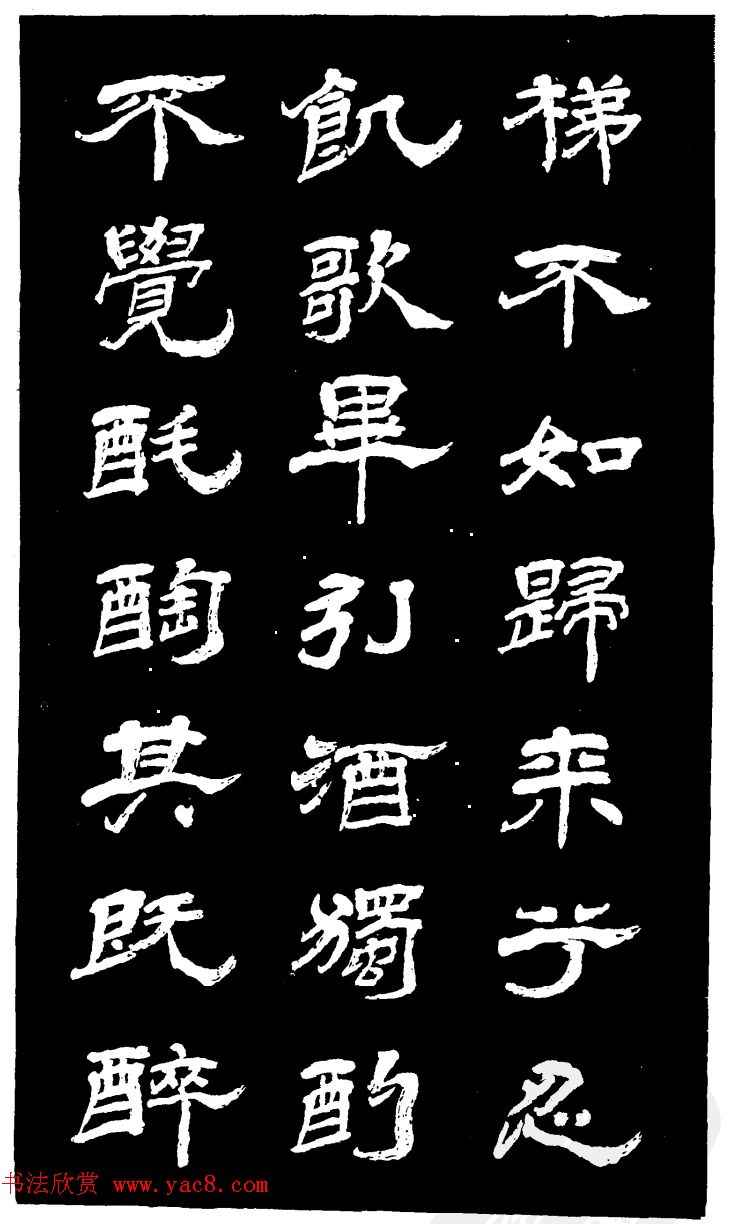 梯不如歸来兮忍
飢歌畢引酒獨酌
不覺酕醄其既醉
书法欣赏 www.yac8.com